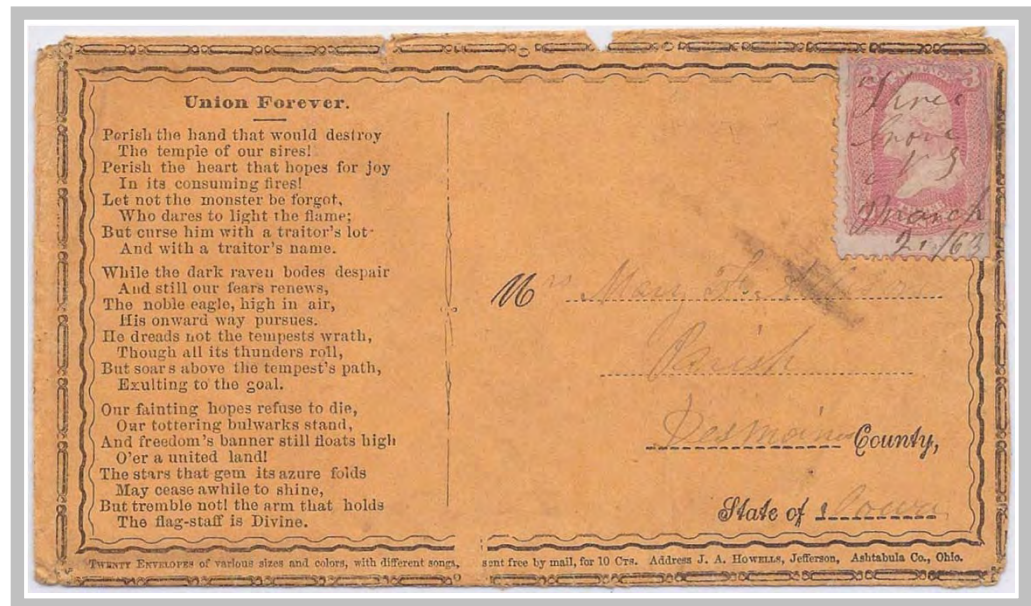 Union Forever.
Perish the hand that would destroy
The temple of our sires!
Perish the heart that hopes for joy
In its consuming fires!
Let not the monster be forgot,
Who dares to light the flame;
But curse him with a traitor's lot
And with a traitor's name.
While the dark raven bodes despair
And still our fears renews,
The noble eagle, high in air,
His onward way pursues.
He dreads not the tempests wrath,
Though all its thunders roll,
But soars above the tempest's path,
Exulting to the goal.
Our fainting hopes refuse to die,
Our tottering bulwarks stand,
And freedom's banner still floats high
O'er a united land!
The stars that gem its azure folds
May cease awhile to shine,
But tremble not! the arm that holds
The flag-staff is Divine.
3 POSTAGE 3
Grove
March
2 /63
Mrs Mary
Parish
Desmoines County,
State of Iowa
TWENTY ENVELOPES of various sizes and colors, with different songs, sent free by mail, for 10 CTS. Address J. A. HOWELLS, Jefferson, Ashtabula Co., Ohio.